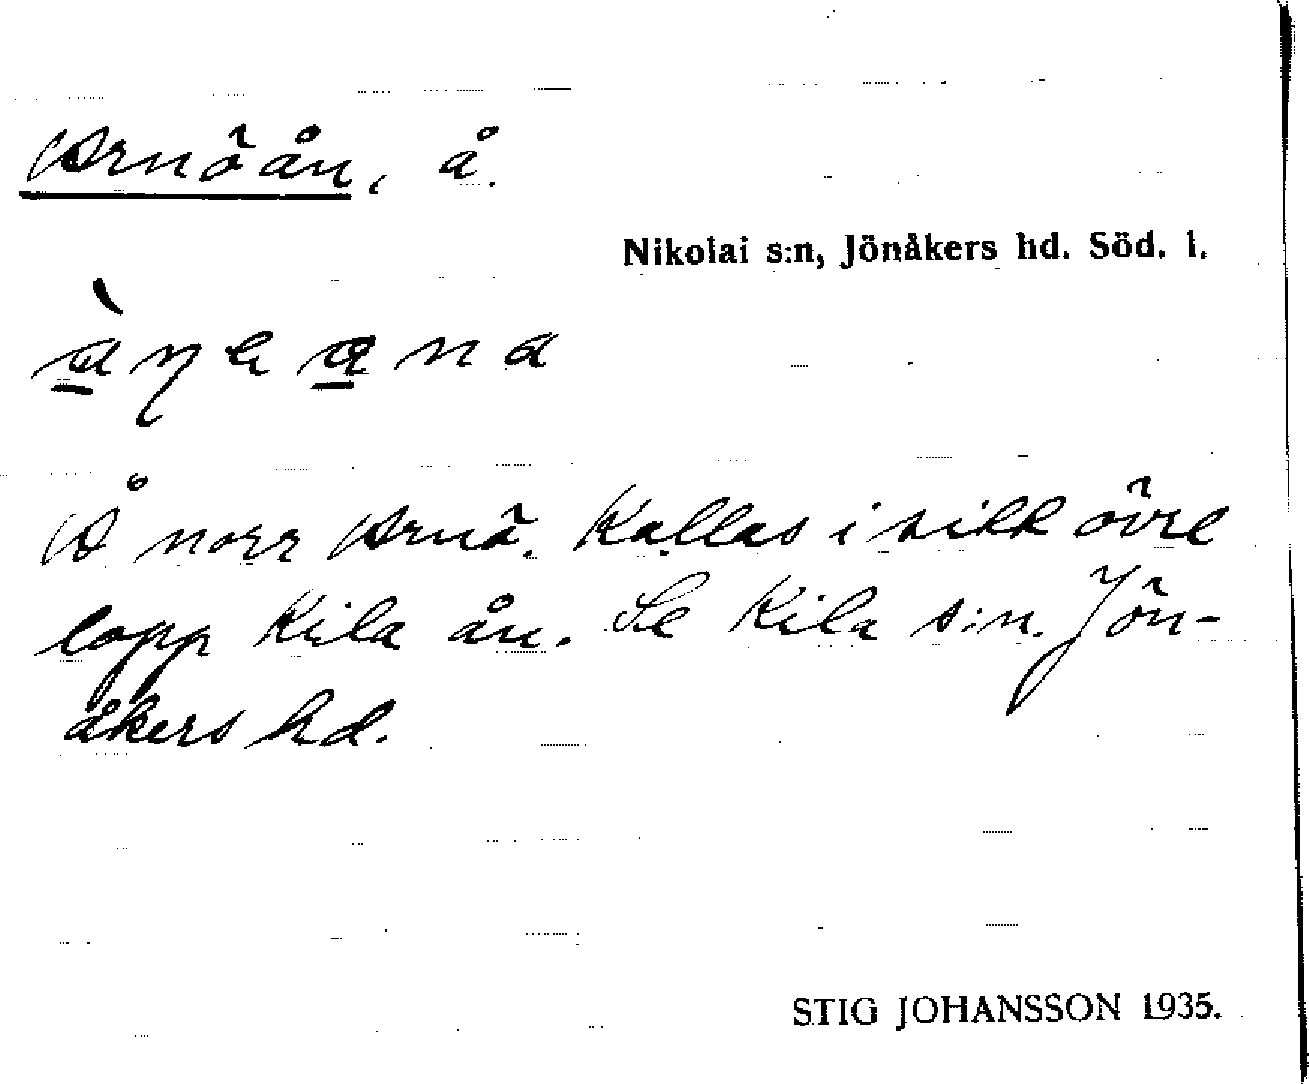 Arnöån, å.
Nikolai s:n, Jönåkers hd. Söd. l.
Å norr Arnö. Kallas i sitt övre
lopp Kila ån. Se Kila s:n. Jön-
åkers hd.
STIG JOHANSSON 1935.